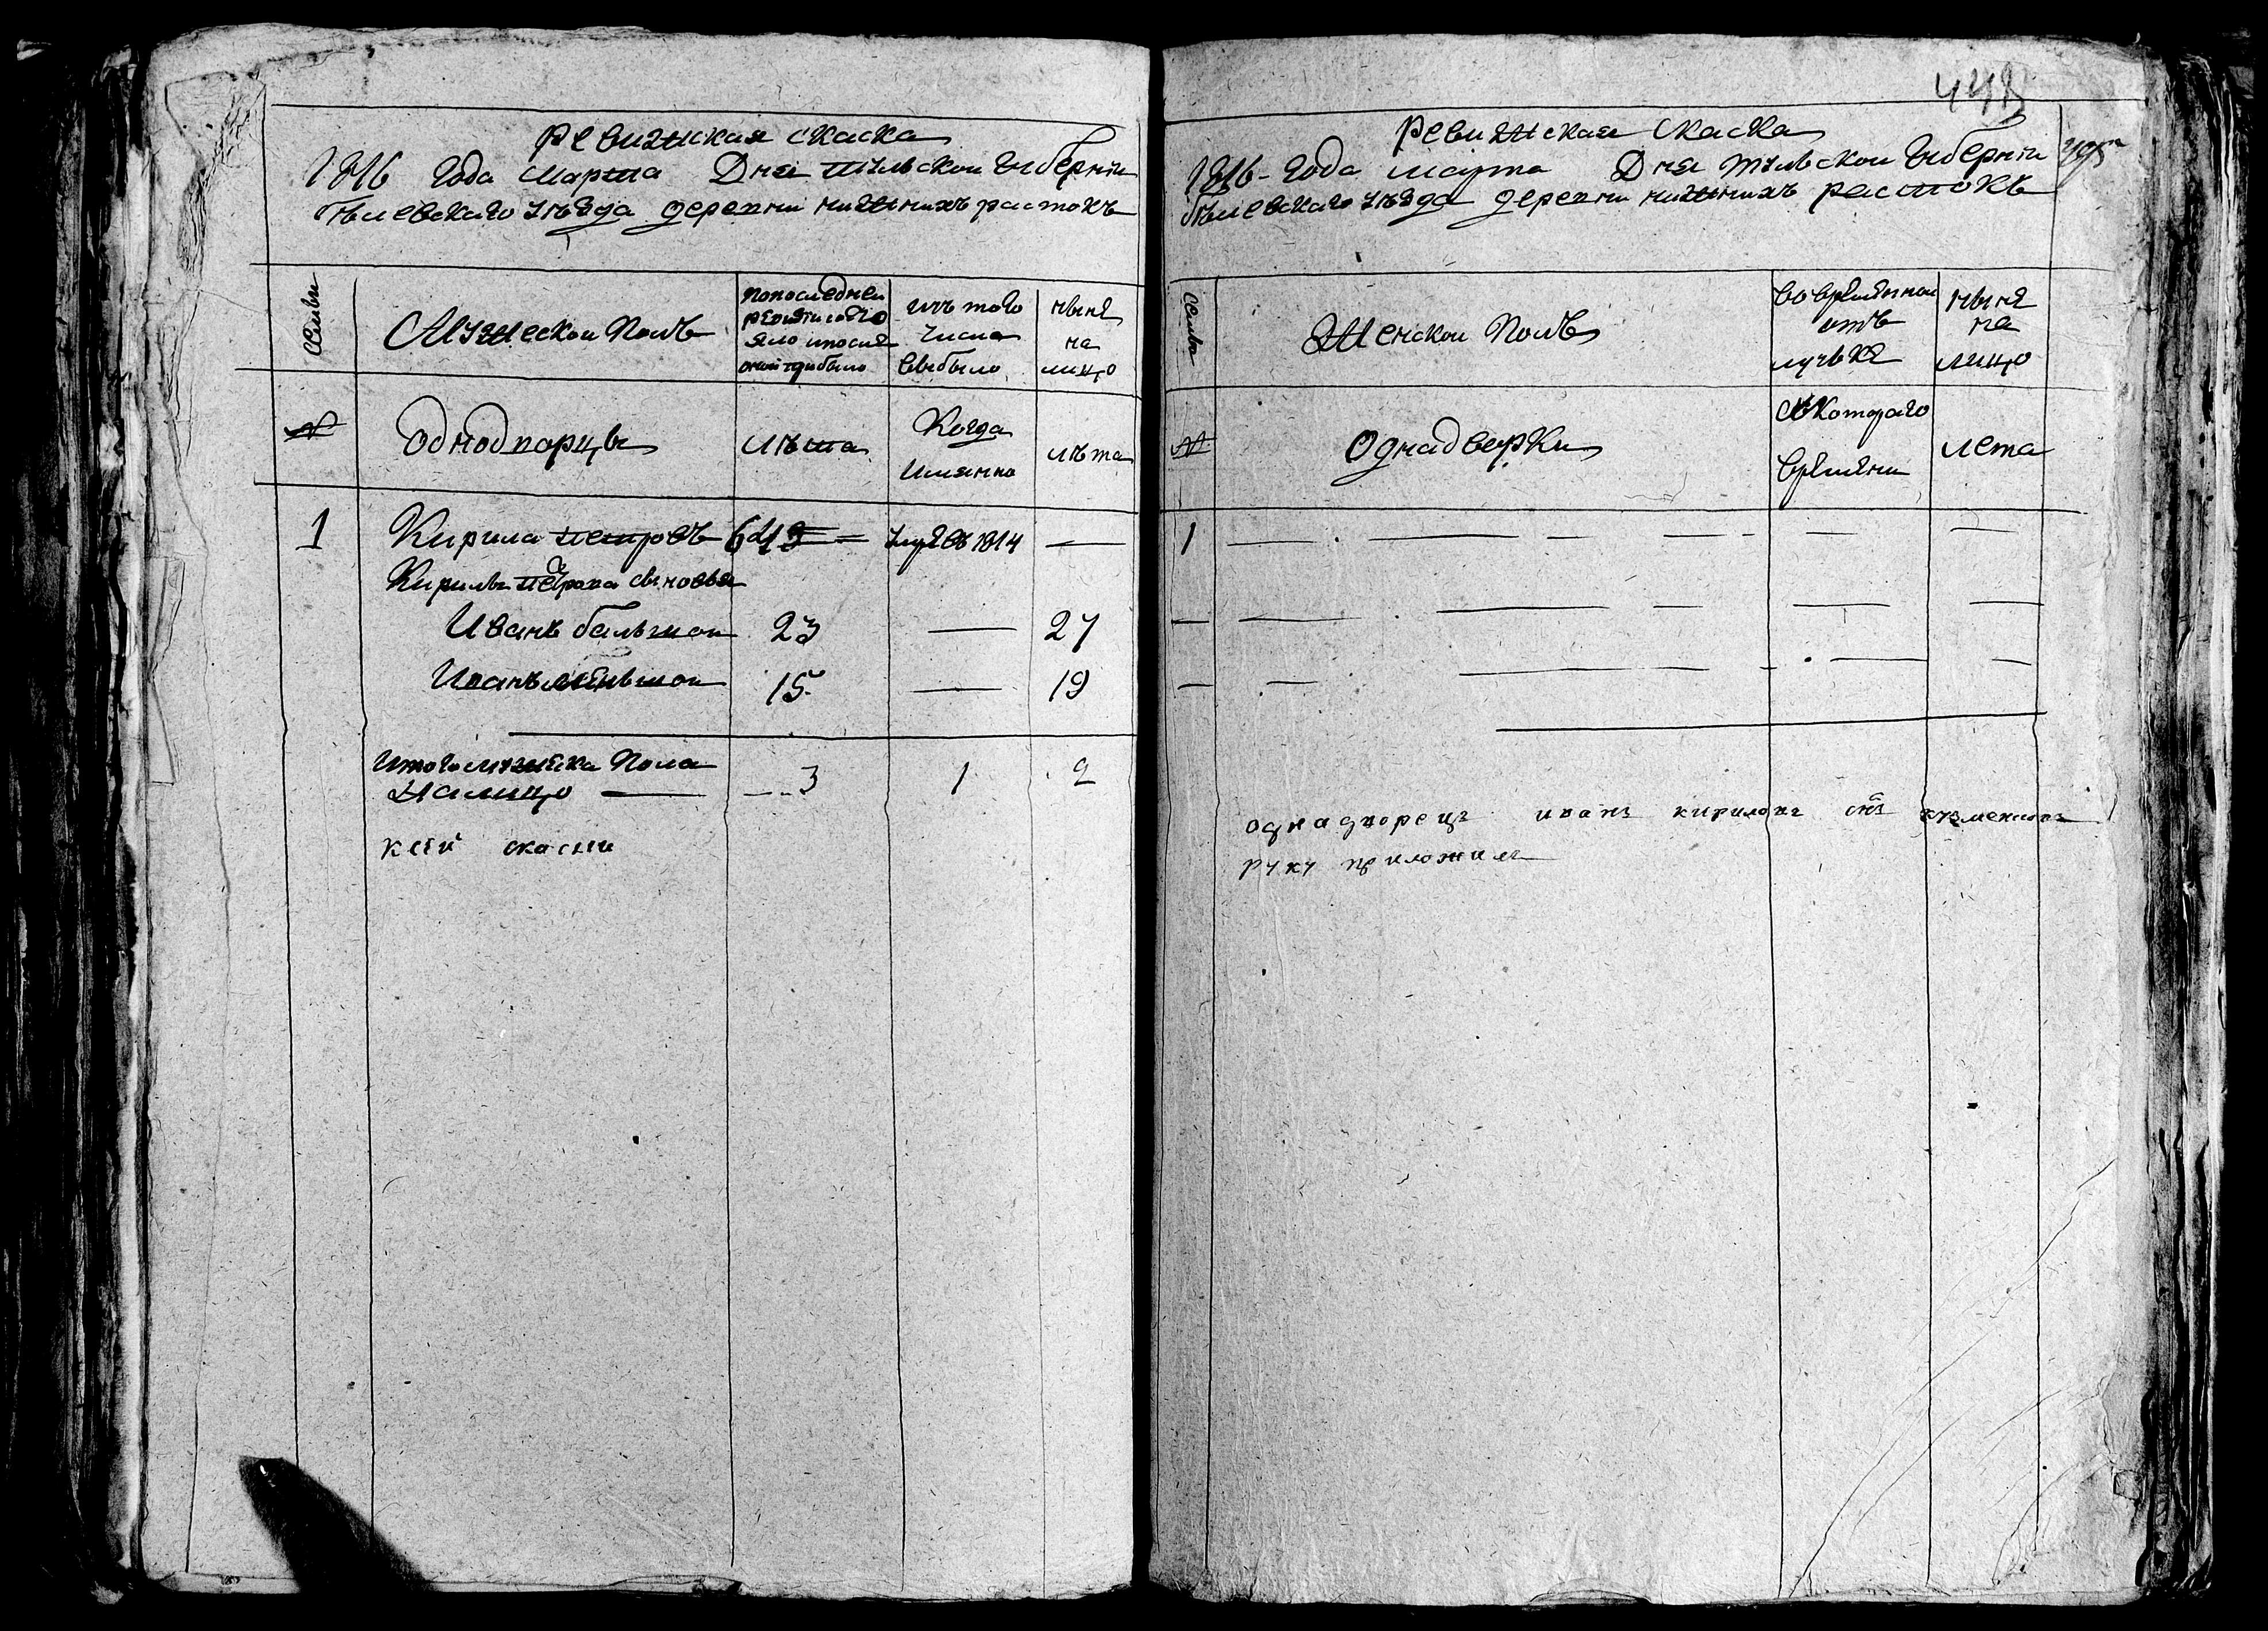 ревижская скаска
1816 года марта Дня тульской губернии
бѣлевскаго уѣзда деревни нижнихъ растокъ
семьи
Мужескои Полъ
попоследнеи
ревизїи состо
яло ипосле
оной прибыло
изъ того
числа
выбыло
нынѣ
на
лицо
№
однодворцы
лѣта
Когда
Имянно
лѣта
1 Кирила петровъ 6 – умре въ 1814 —
Кирилы петрова сыновья
Иванъ балшои 23 — 27
Иванъ меньшои 15 — 19
Итого мужеска Пола
Налицо — 3 1 2
к сеи скаски
448
ревижская Скаска
1816 года марта Дня тульскои губернїи
бѣлевскаго уѣзда деревни нижнихъ растокъ
семьи
Женскои Полъ
во временнои
отъ
лучьке
нынѣ
на
лицо
№
Однадверки
Съ Котораго
времяни
лета
1 — — — — —
однадворецъ иванъ кириловъ снъ
руку приложилъ